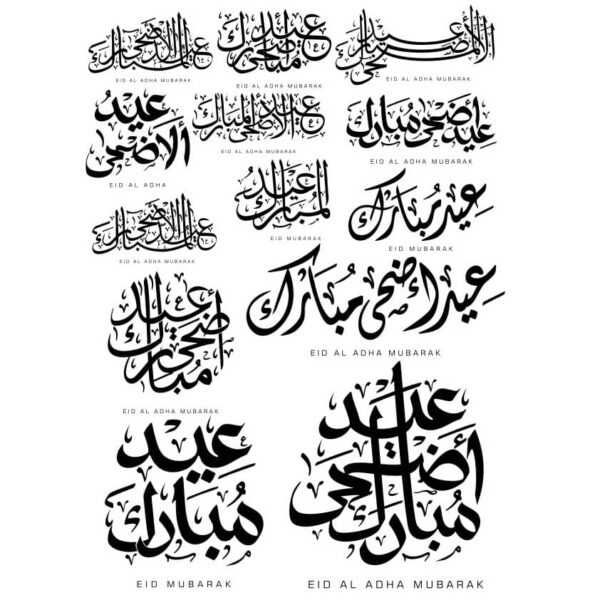 عيد الأضحى المبارك
EID AL ADHA MUBARAK
عيد أضحى مبارك
EID AL ADHA MUBARAK
عيد الأضحى المبارك
EID AL ADHA MUBARAK
عيد
الاضحى
EID AL ADHA
عيد الأضحى المبارك
EID AL ADHA MUBARAK
عيد أضحى مبارك
EID AL ADHA MUBARAK
عيد
المبارك
EID MUBARAK
عيد مبارك
EID MUBARAK
عيد الأضحى المبارك
EID AL ADHA MUBARAK
عيد أضحى مبارك
EID AL ADHA MUBARAK
عيد
أضحى
مبارك
EID AL ADHA MUBARAK
عيد
مبارك
EID MUBARAK
عيد
أضحى
مبارك
EID AL ADHA MUBARAK